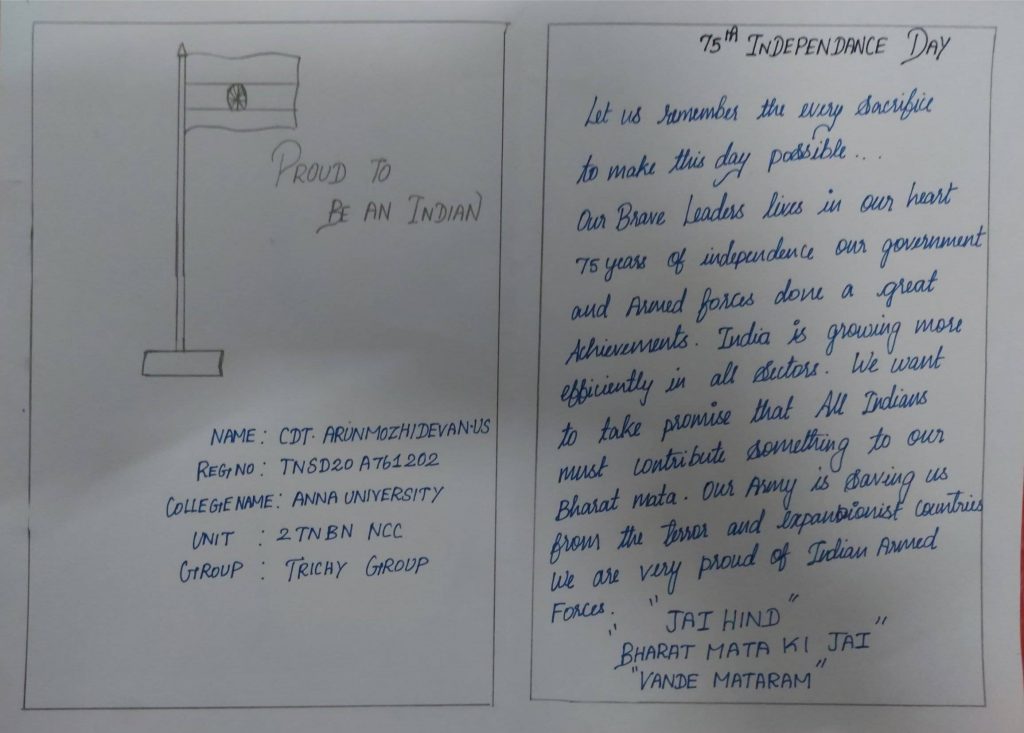 PROUD TO
BE AN INDIAN
NAME : CDT. ARUNMOZHIDEVAN.US
REG NO : TNSD20A761202
COLLEGE NAME : ANNA UNIVERSITY
UNIT : 2 TN BN NCC
GROUP : TRICHY GROUP
75TH INDEPENDANCE DAY
Let us remember the every sacrifice
to make this day possible...
Our Brave Leaders lives in our heart
75 years of independence our government
and Armed forces done a great
Achievements. India is growing more
efficiently in all sectors. We want
to take promise that All Indians
must contribute something to our
Bharat mata. Our Army is saving us
from the terror and expansionist countries
We are very proud of Indian Armed
Forces. "JAI HIND"
"BHARAT MATA KI JAI"
"VANDE MATARAM"